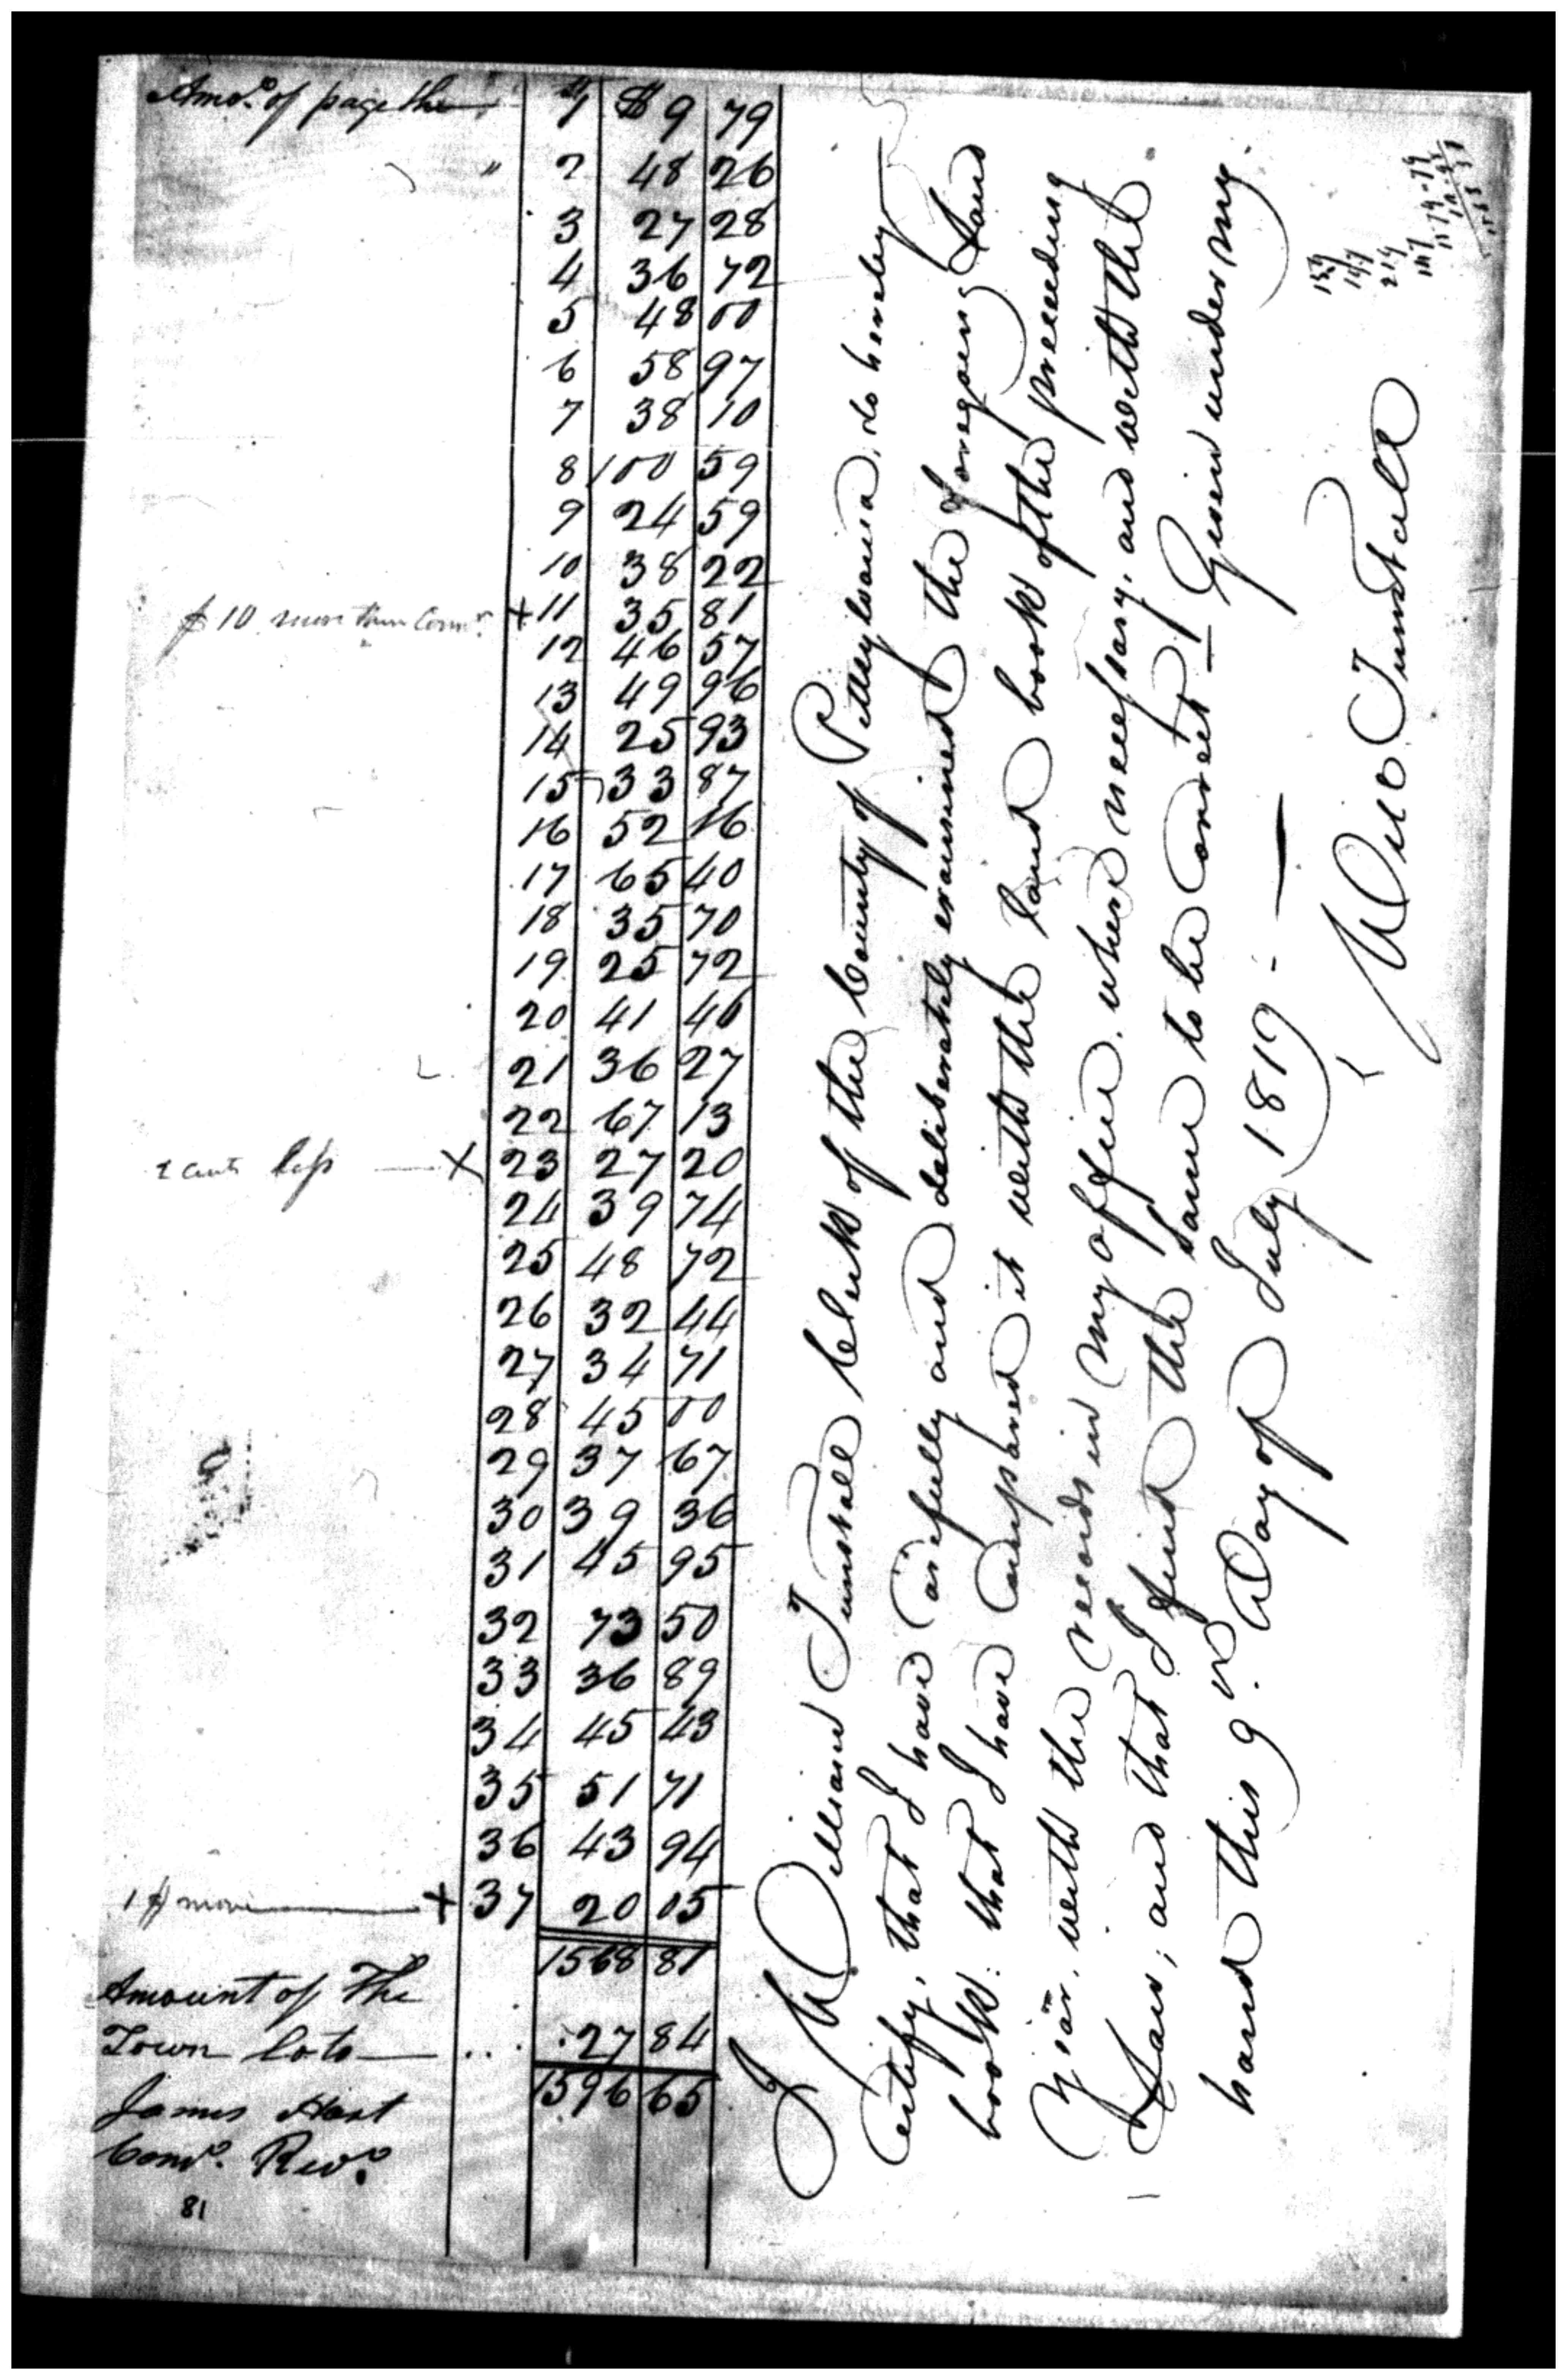 Amo.º of page the 1 $ 9 79
" 2 48 26
3 27 28
4 36 72
5 48 00
6 58 97
7 38 10
8 100 59
9 24 59
10 38 22
$10 more than Com.r + 11 35 81
12 46 57
13 49 96
14 25 93
15 33 87
16 52 16
17 65 40
18 35 70
19 25 72
20 41 46
21 36 27
22 67 13
2 cents less X 23 27 20
24 39 74
25 48 72
26 32 44
27 34 71
28 45 00
29 37 67
30 39 36
31 45 95
32 73 50
33 36 89
34 45 43
35 51 71
36 43 94
1 $ more + 37 20 05
1568 81
Amount of The
Town lots ... 27 84
1596 65
James Hart
Com.r Rev.e
81
I William Tunstall Clerk of the County of Pittsylvania, do hereby
Certify, that I have Carefully and deliberately examined the foregoing Land
book: that I have Compared it with the land book of the preceeding
Year, with the records in my office, where necessary, and with the
Laws; and that I find the same to be Correct — Given under my
hand this 9.th Day of July 1819 —
Will Tunstall